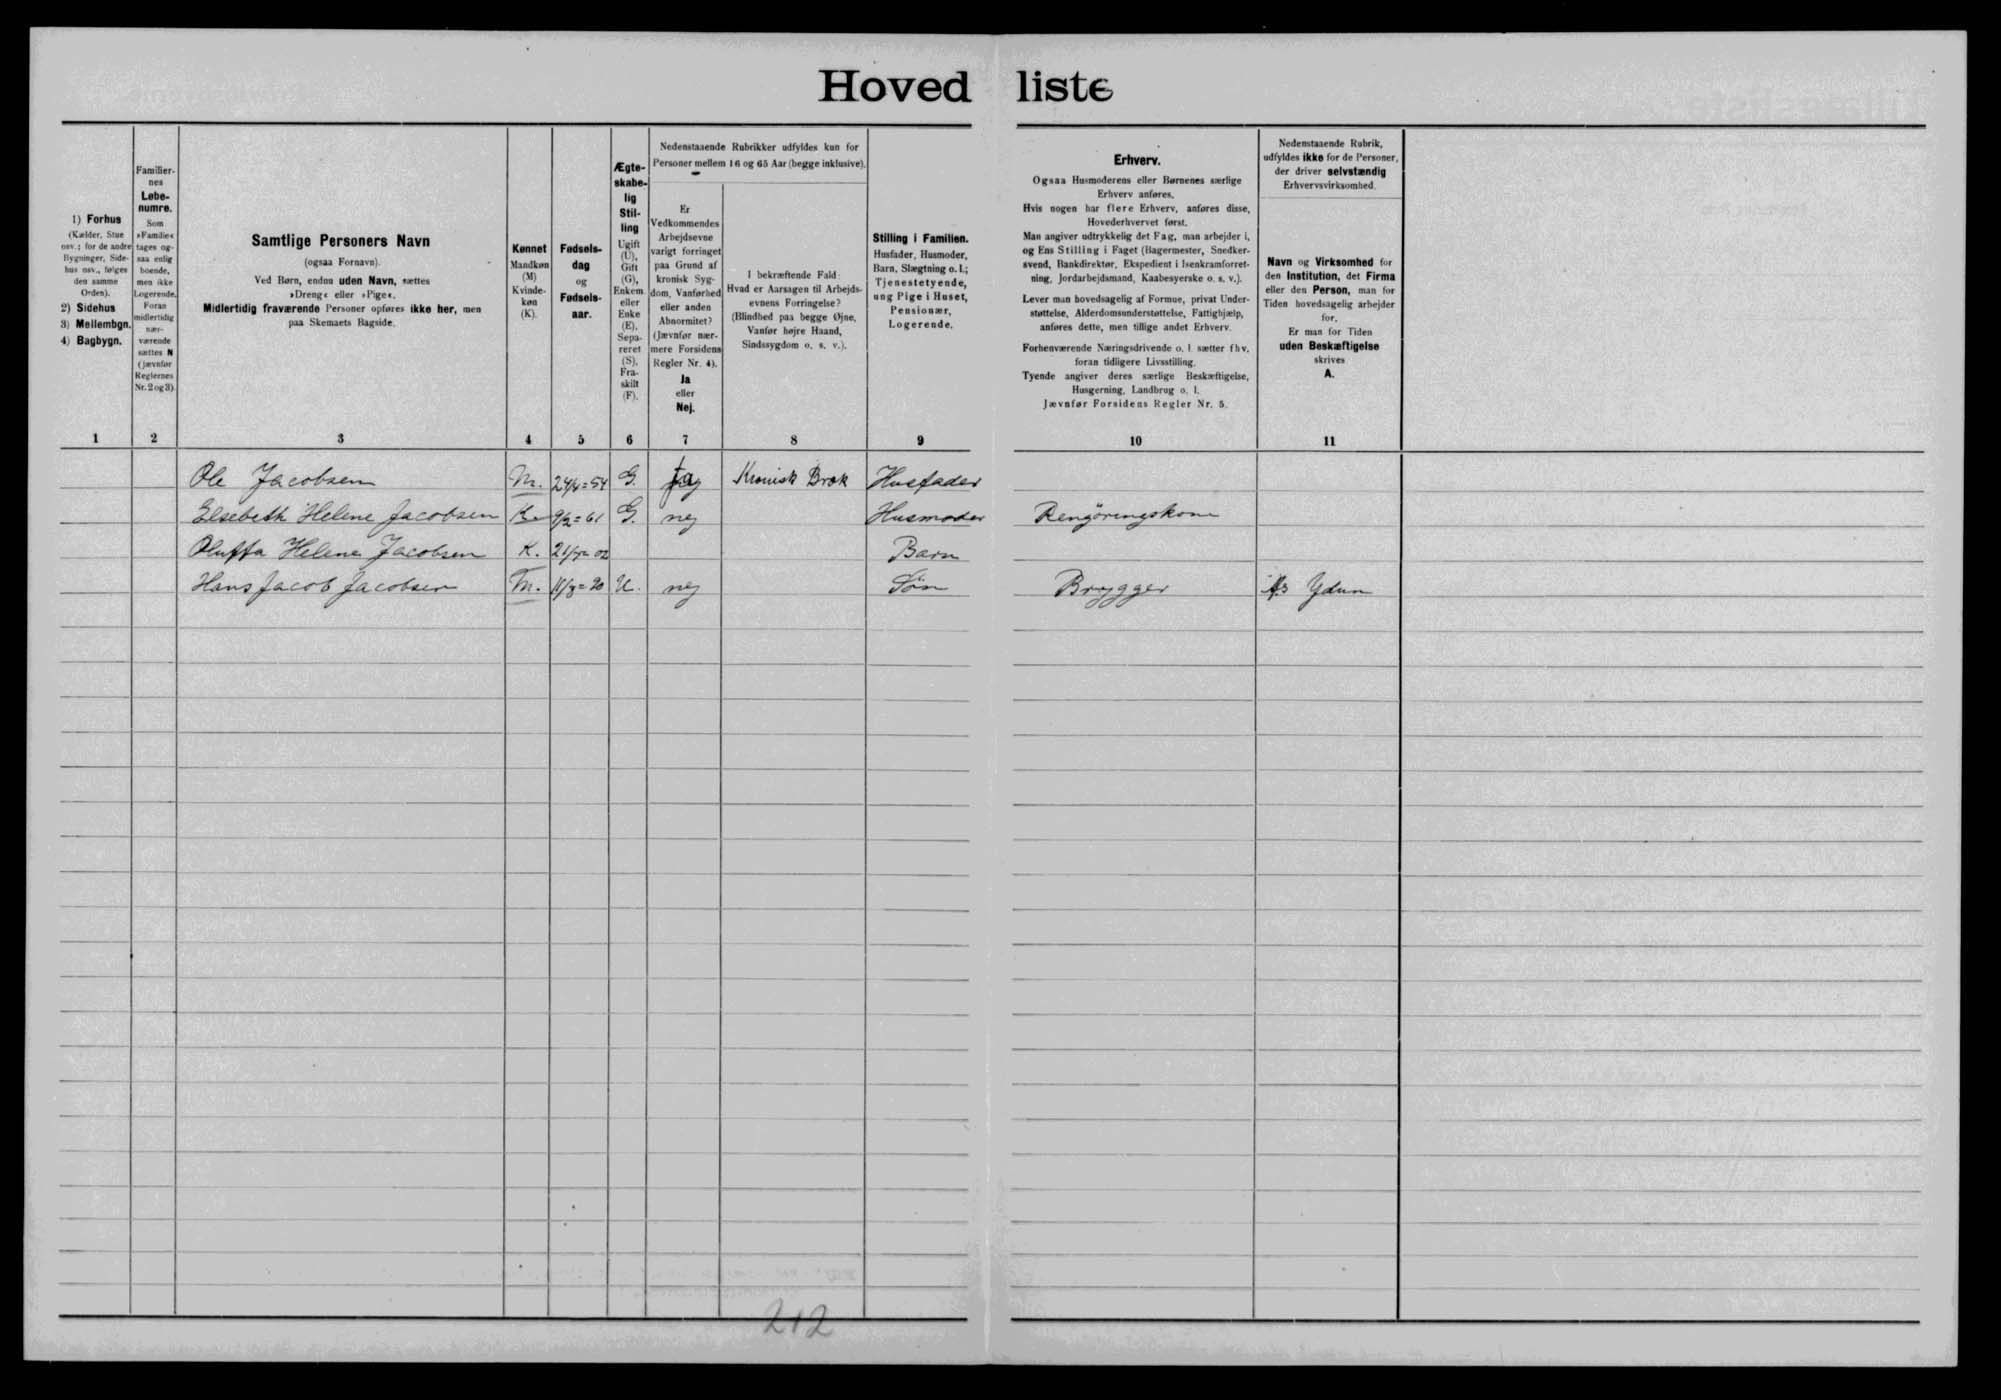 Hoved liste
1) Forhus
(Kælder, Stue
osv.; for de andre
Bygninger, Side-
hus osv., følges
den samme
Orden).
2) Sidehus
3) Mellembgn.
4) Bagbygn.
Familier-
nes
Løbe-
numre.
Som
»Familie«
tages og-
saa enlig
boende,
men ikke
Logerende.
Foran
midlertidig
nær-
værende
sættes N
(jævnfør
Reglernes
Nr. 2 og 3).
Samtlige Personers Navn
(ogsaa Fornavn).
Ved Børn, endnu uden Navn, sættes
»Dreng« eller »Pige«.
Midlertidig fraværende Personer opføres ikke her, men
paa Skemaets Bagside.
Kønnet
Mandkøn
(M)
Kvinde-
køn
(K).
Fødsels-
dag
og
Fødsels-
aar.
Ægte-
skabe-
lig
Stil-
ling
Ugift
(U),
Gift
(G),
Enkem.
eller
Enke
(E),
Sepa-
reret
(S),
Fra-
skilt
(F).
Nedenstaaende Rubrikker udfyldes kun for
Personer mellem 16 og 65 Aar (begge inklusive).
Er
Vedkommendes
Arbejdsevne
varigt forringet
paa Grund af
kronisk Syg-
dom, Vanførhed
eller anden
Abnormitet?
(Jævnfør nær-
mere Forsidens
Regler Nr. 4).
Ja
eller
Nej.
I bekræftende Fald:
Hvad er Aarsagen til Arbejds-
evnens Forringelse?
(Blindhed paa begge Øjne,
Vanfør højre Haand,
Sindssygdom o. s. v.).
Stilling i Familien.
Husfader, Husmoder,
Barn, Slægtning o. l.;
Tjenestetyende,
ung Pige i Huset,
Pensionær,
Logerende.
Erhverv.
Ogsaa Husmoderens eller Børnenes særlige
Erhverv anføres.
Hvis nogen har flere Erhverv, anføres disse,
Hovederhvervet først.
Man angiver udtrykkelig det Fag, man arbejder i,
og Ens Stilling i Faget (Bagermester, Snedker-
svend, Bankdirektør, Ekspedient i Isenkramforret-
ning, Jordarbejdsmand, Kaabesyerske o. s. v.).
Lever man hovedsagelig af Formue, privat Under-
støttelse, Alderdomsunderstøttelse, Fattighjælp,
anføres dette, men tillige andet Erhverv.
Forhenværende Næringsdrivende o. l. sætter fhv.
foran tidligere Livsstilling.
Tyende angiver deres særlige Beskæftigelse,
Husgerning, Landbrug o. l.
Jævnfør Forsidens Regler Nr. 5.
Nedenstaaende Rubrik,
udfyldes ikke for de Personer,
der driver selvstændig
Erhvervsvirksomhed.
Navn og Virksomhed for
den Institution, det Firma
eller den Person, man for
Tiden hovedsagelig arbejder
for.
Er man for Tiden
uden Beskæftigelse
skrives
A.
1 2 3 4 5 6 7 8 9 10 11
Ole Jacobsen M. G. Ja Kronisk Brok Husfader
Elsebeth Helene Jacobsen K 9/2=61 G. nej Husmoder Rengöringskone
Oluffa Helene Jacobsen K. Barn
Hans Jacob Jacobsen M. U. nej Søn Brygger Ydun
212